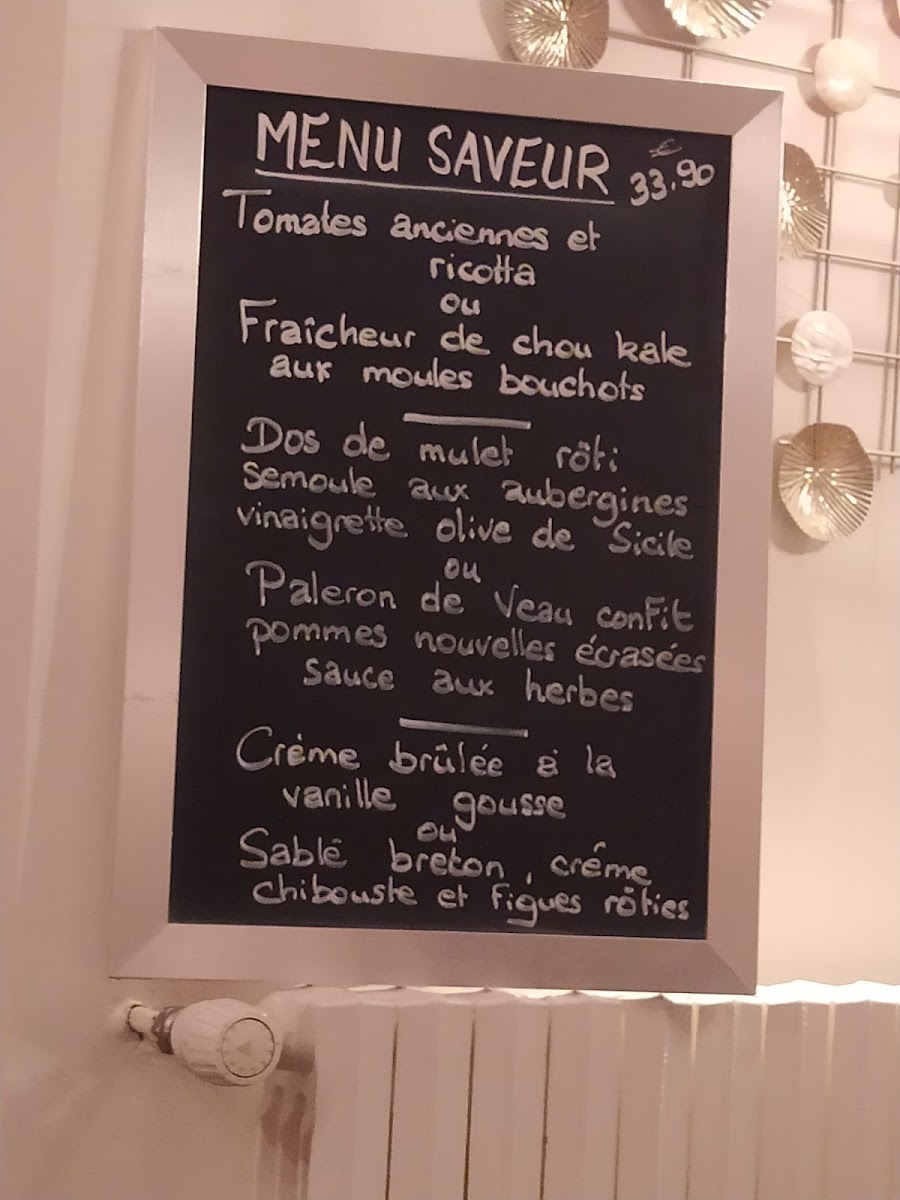 MENU SAVEUR € 33.90
Tomates anciennes et
ricotta
ou
Fraîcheur de chou kale
aux moules bouchots
Dos de mulet rôti
semoule aux aubergines
vinaigrette olive de Sicile
ou
Paleron de veau confit
pommes nouvelles écrasées
sauce aux herbes
Crème brûlée à la
vanille gousse
ou
Sablé breton, crème
chibouste et figues rôties